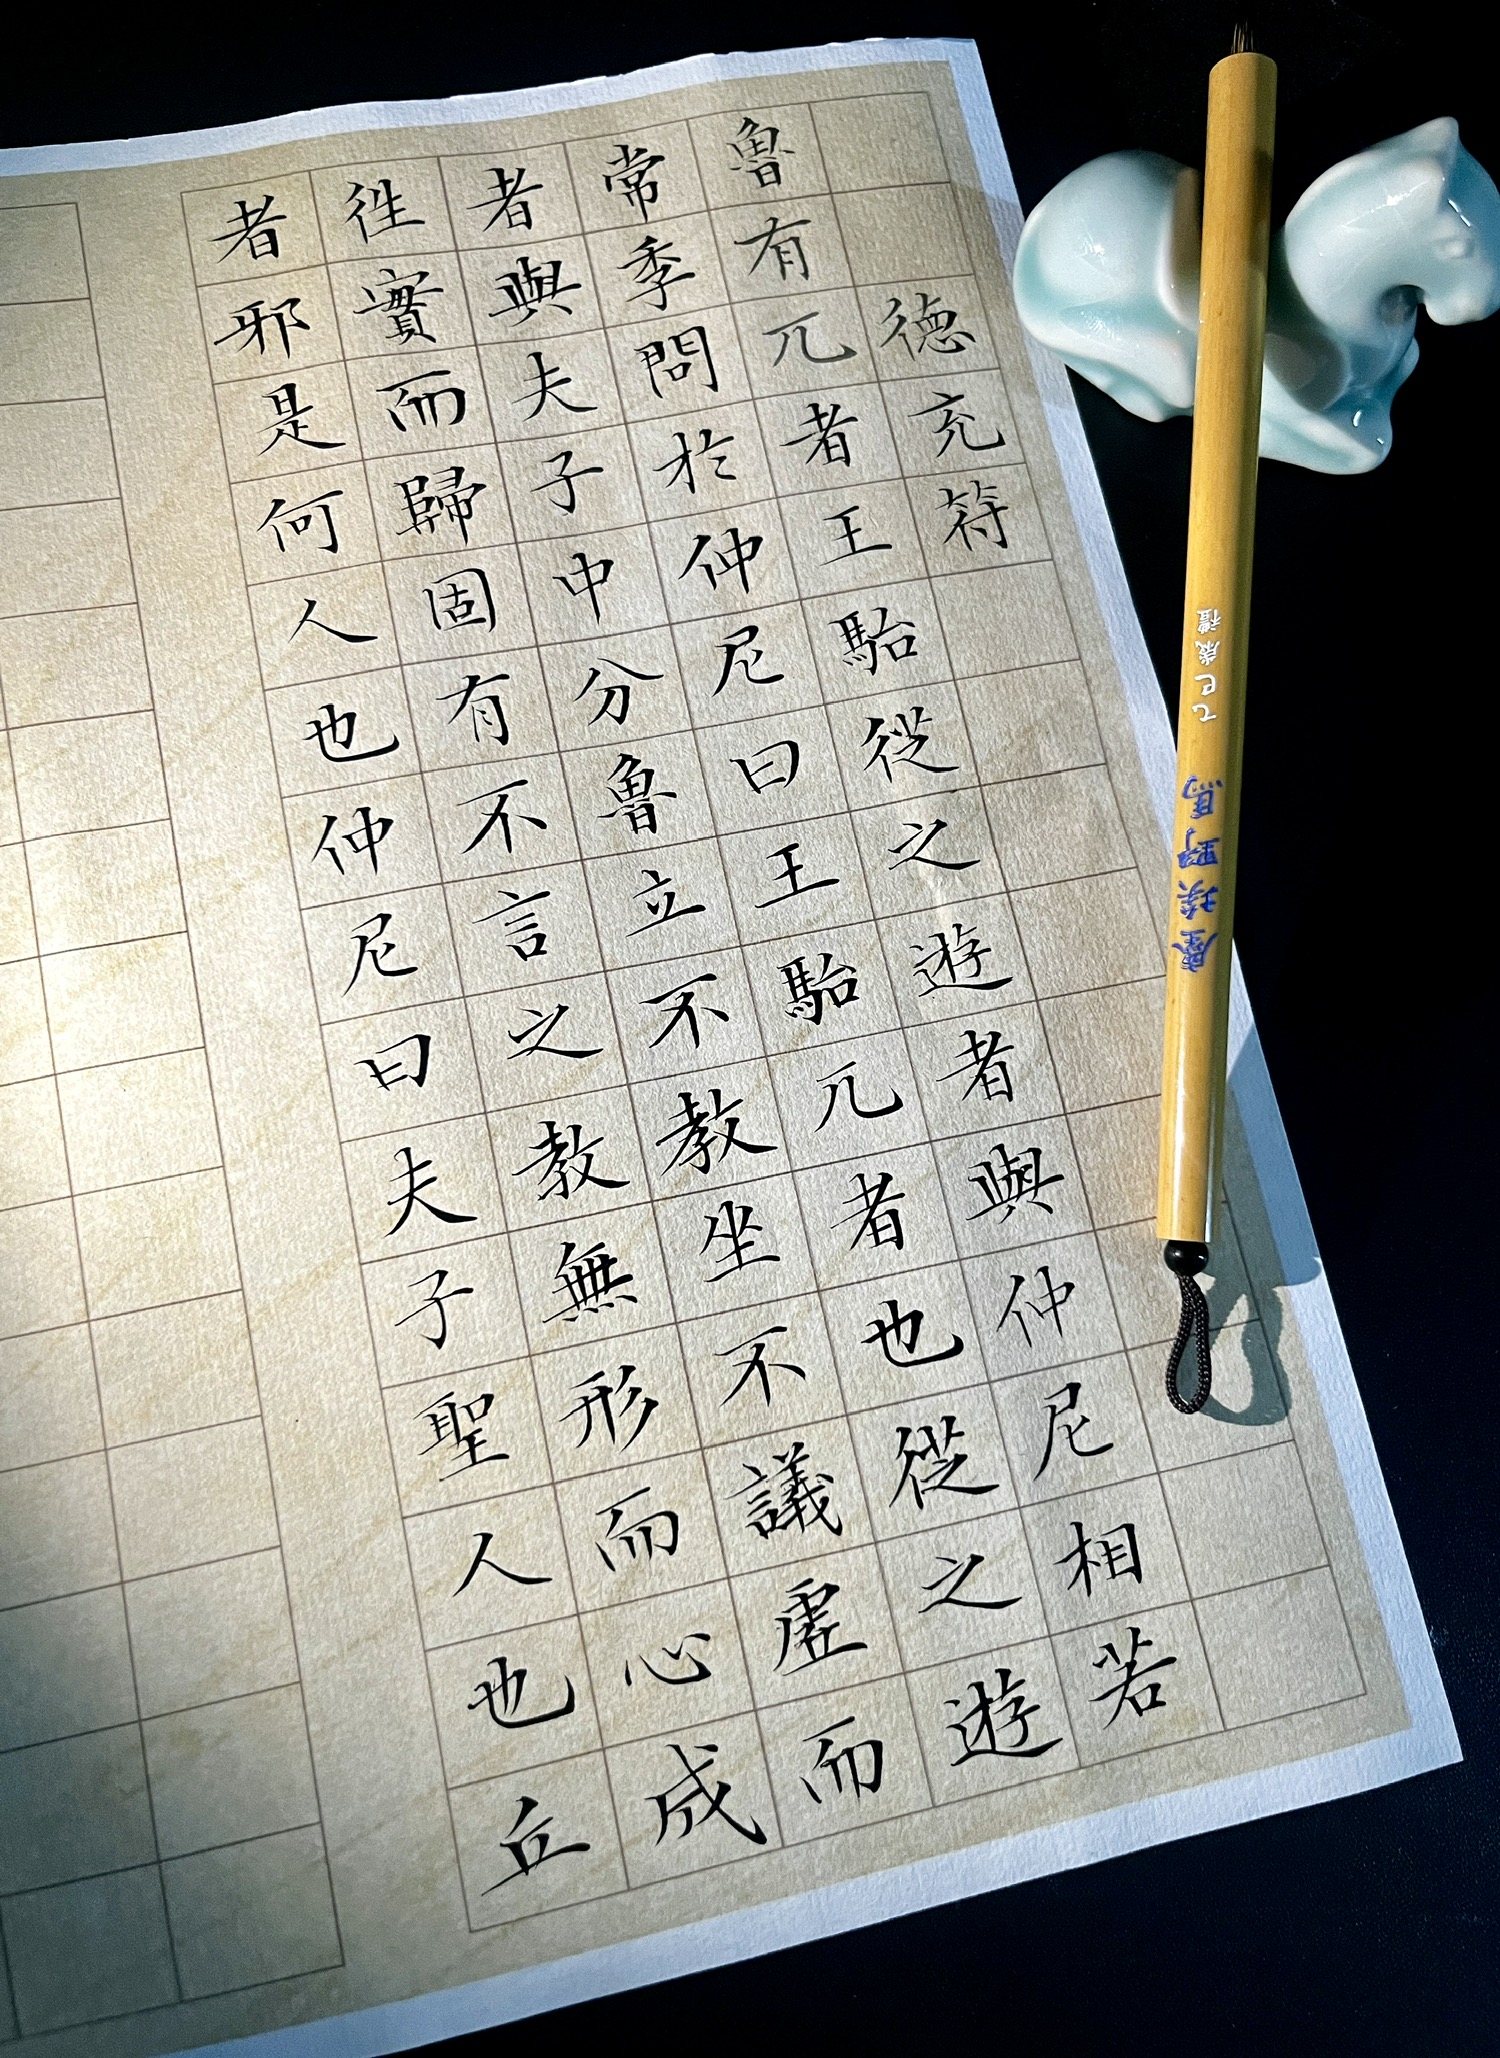 德充符
魯有兀者王駘從之遊者與仲尼相若
常季問於仲尼曰王駘兀者也從之遊
者與夫子中分魯立不教坐不議虛而
徃實而歸固有不言之教無形而心成
者邪是何人也仲尼曰夫子聖人也丘
塵埃野馬
乙巳歲禮